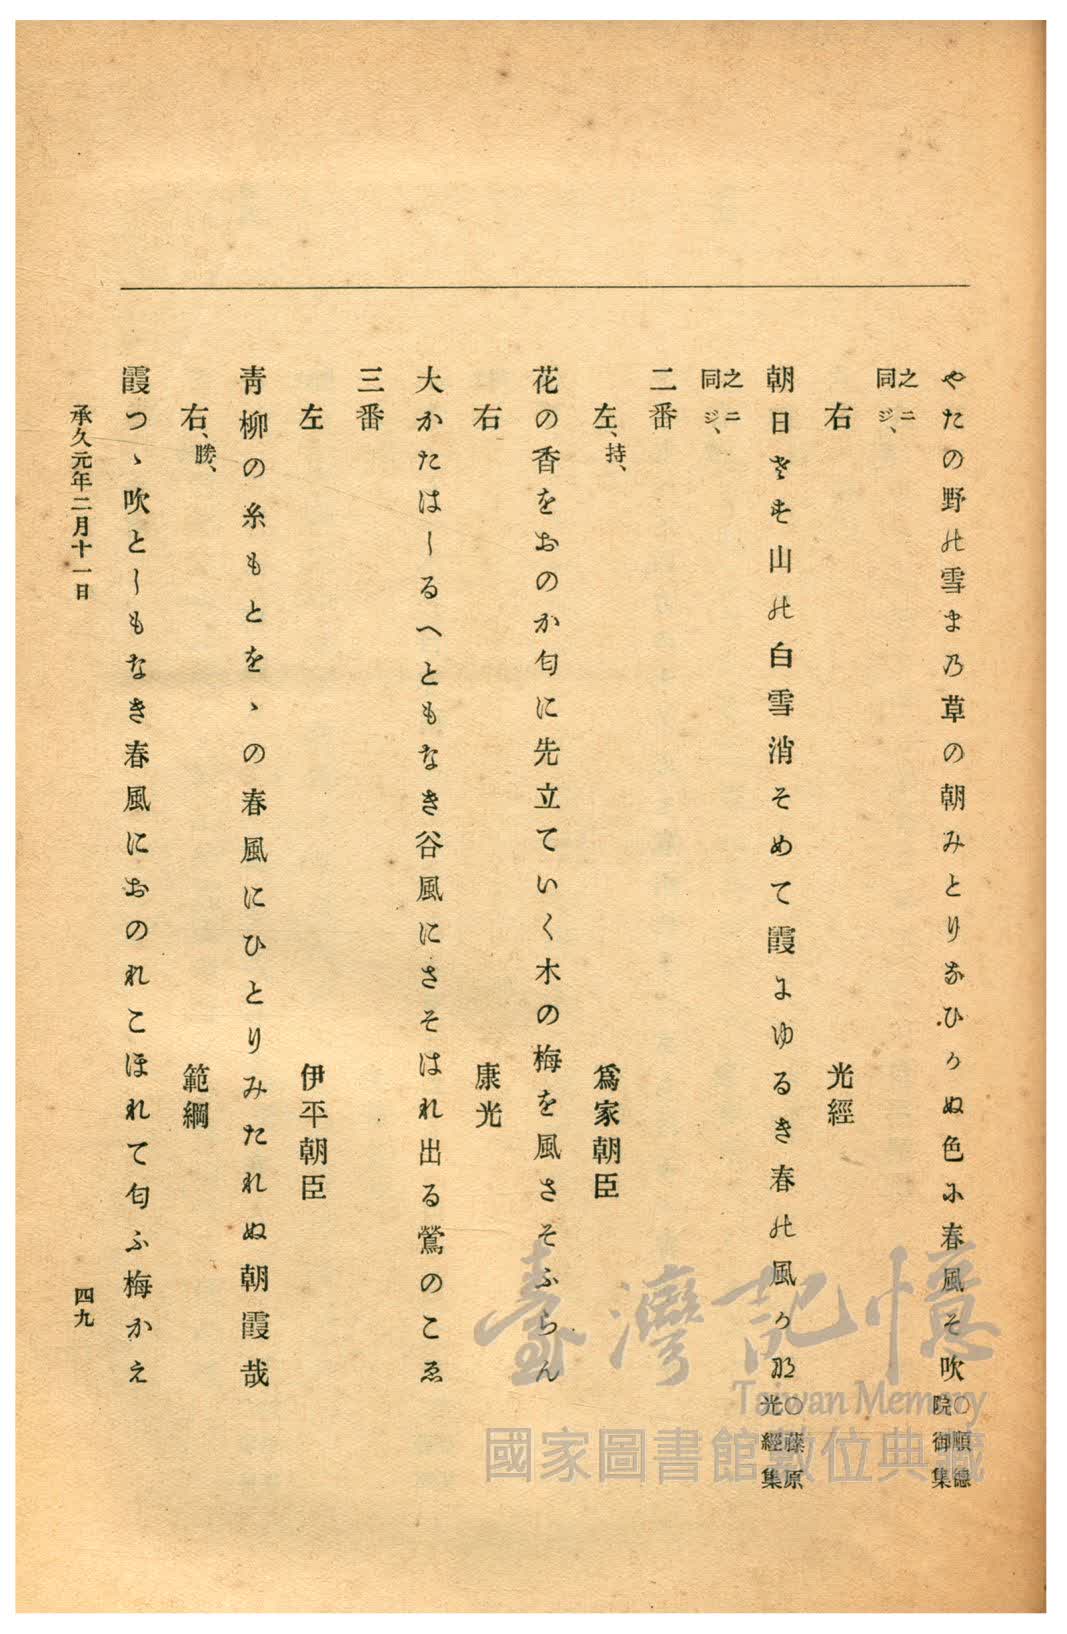 やたの野の雪ま乃草の朝みとりなひかぬ色に春風そ吹○順德院御集
之ニ同ジ、
右　光經
朝日さす山の白雪消そめて霞にゆるき春の風かな○藤原光經集
之ニ同ジ、
二番
左、持、　爲家朝臣
花の香をおのか匂に先立ていく木の梅を風さそふらん
右　康光
大かたはしるへともなき谷風にさそはれ出る鶯のこゑ
三番
左　伊平朝臣
靑柳の糸もとをヽの春風にひとりみたれぬ朝霞哉
右、勝、　範綱
霞つヽ吹としもなき春風におのれこほれて匂ふ梅かえ
承久元年二月十一日
四九
臺灣記憶
Taiwan Memory
國家圖書館數位典藏